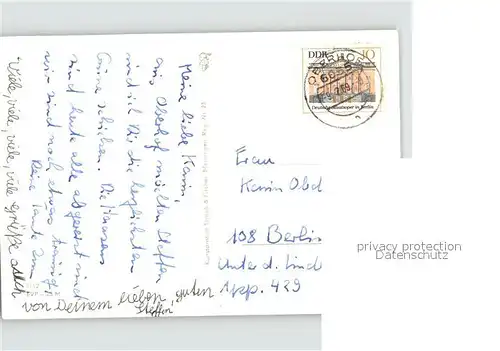 Meine liebe Karin,
aus Oberhof möchten Steffen
und ich Dir die herzlichsten
Grüße schicken. Die
sind heute alle abgereist und
wir sind noch etwas traurig.
Deine Tante
Viele, viele, viele, viele Grüße auch
von Deinem lieben, guten
Steffen
DDR 10
Deutsche Staatsoper in Berlin
OBERHOF
Frau
Karin Obd
108 Berlin
Unter d. Lind
App. 429
privacy protection
Datenschutz